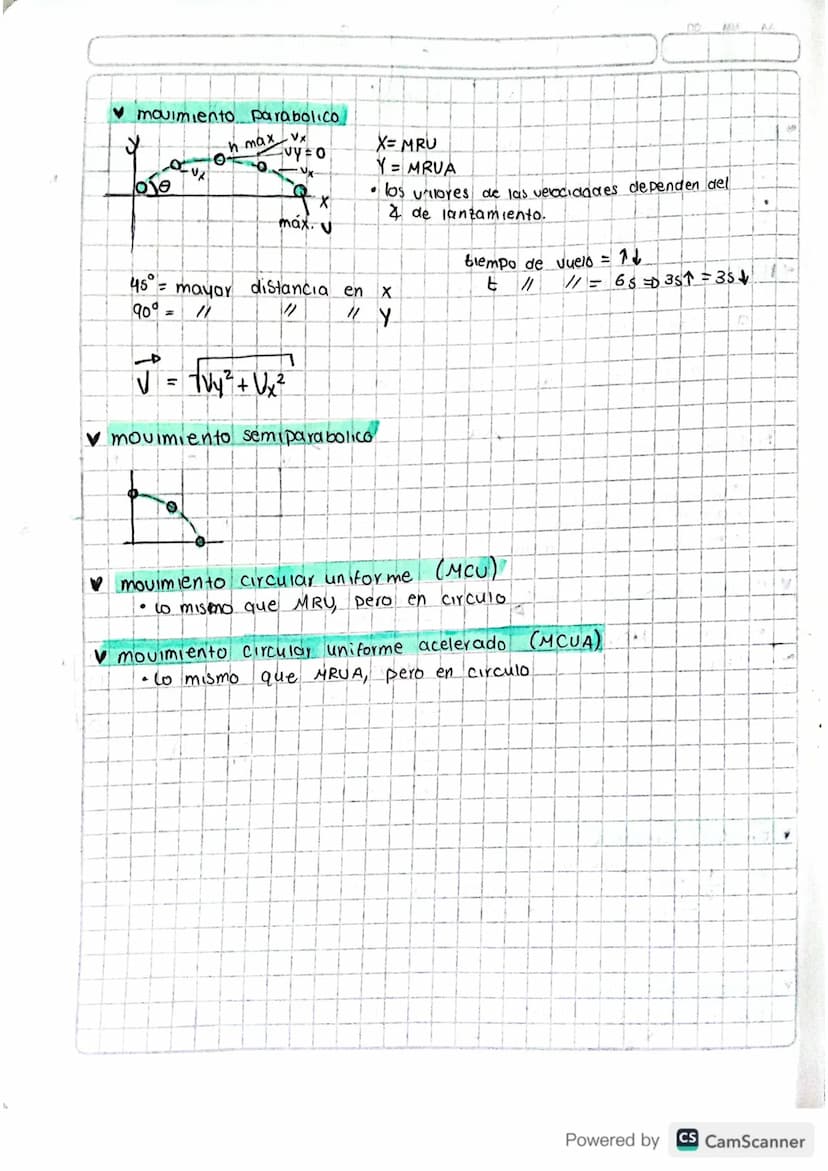 DD MM AA
movimiento parabolico
y
h max
Vx
Vy=0
Vx
Vx
θ
x
máx. V
X= MRU
Y = MRUA
• los valores de las velocidades dependen del
∡ de lanzamiento.
tiempo de vuelo = ↑↓
t // // = 6s => 3s↑ = 3s↓
45° = mayor distancia en x
90° = // // // y
V = √Vy² + Vx²
movimiento semiparabolico
movimiento circular uniforme (MCU)
• Lo mismo que MRU, pero en circulo
movimiento circular uniforme acelerado (MCUA)
• Lo mismo que MRUA, pero en circulo
Powered by CS CamScanner